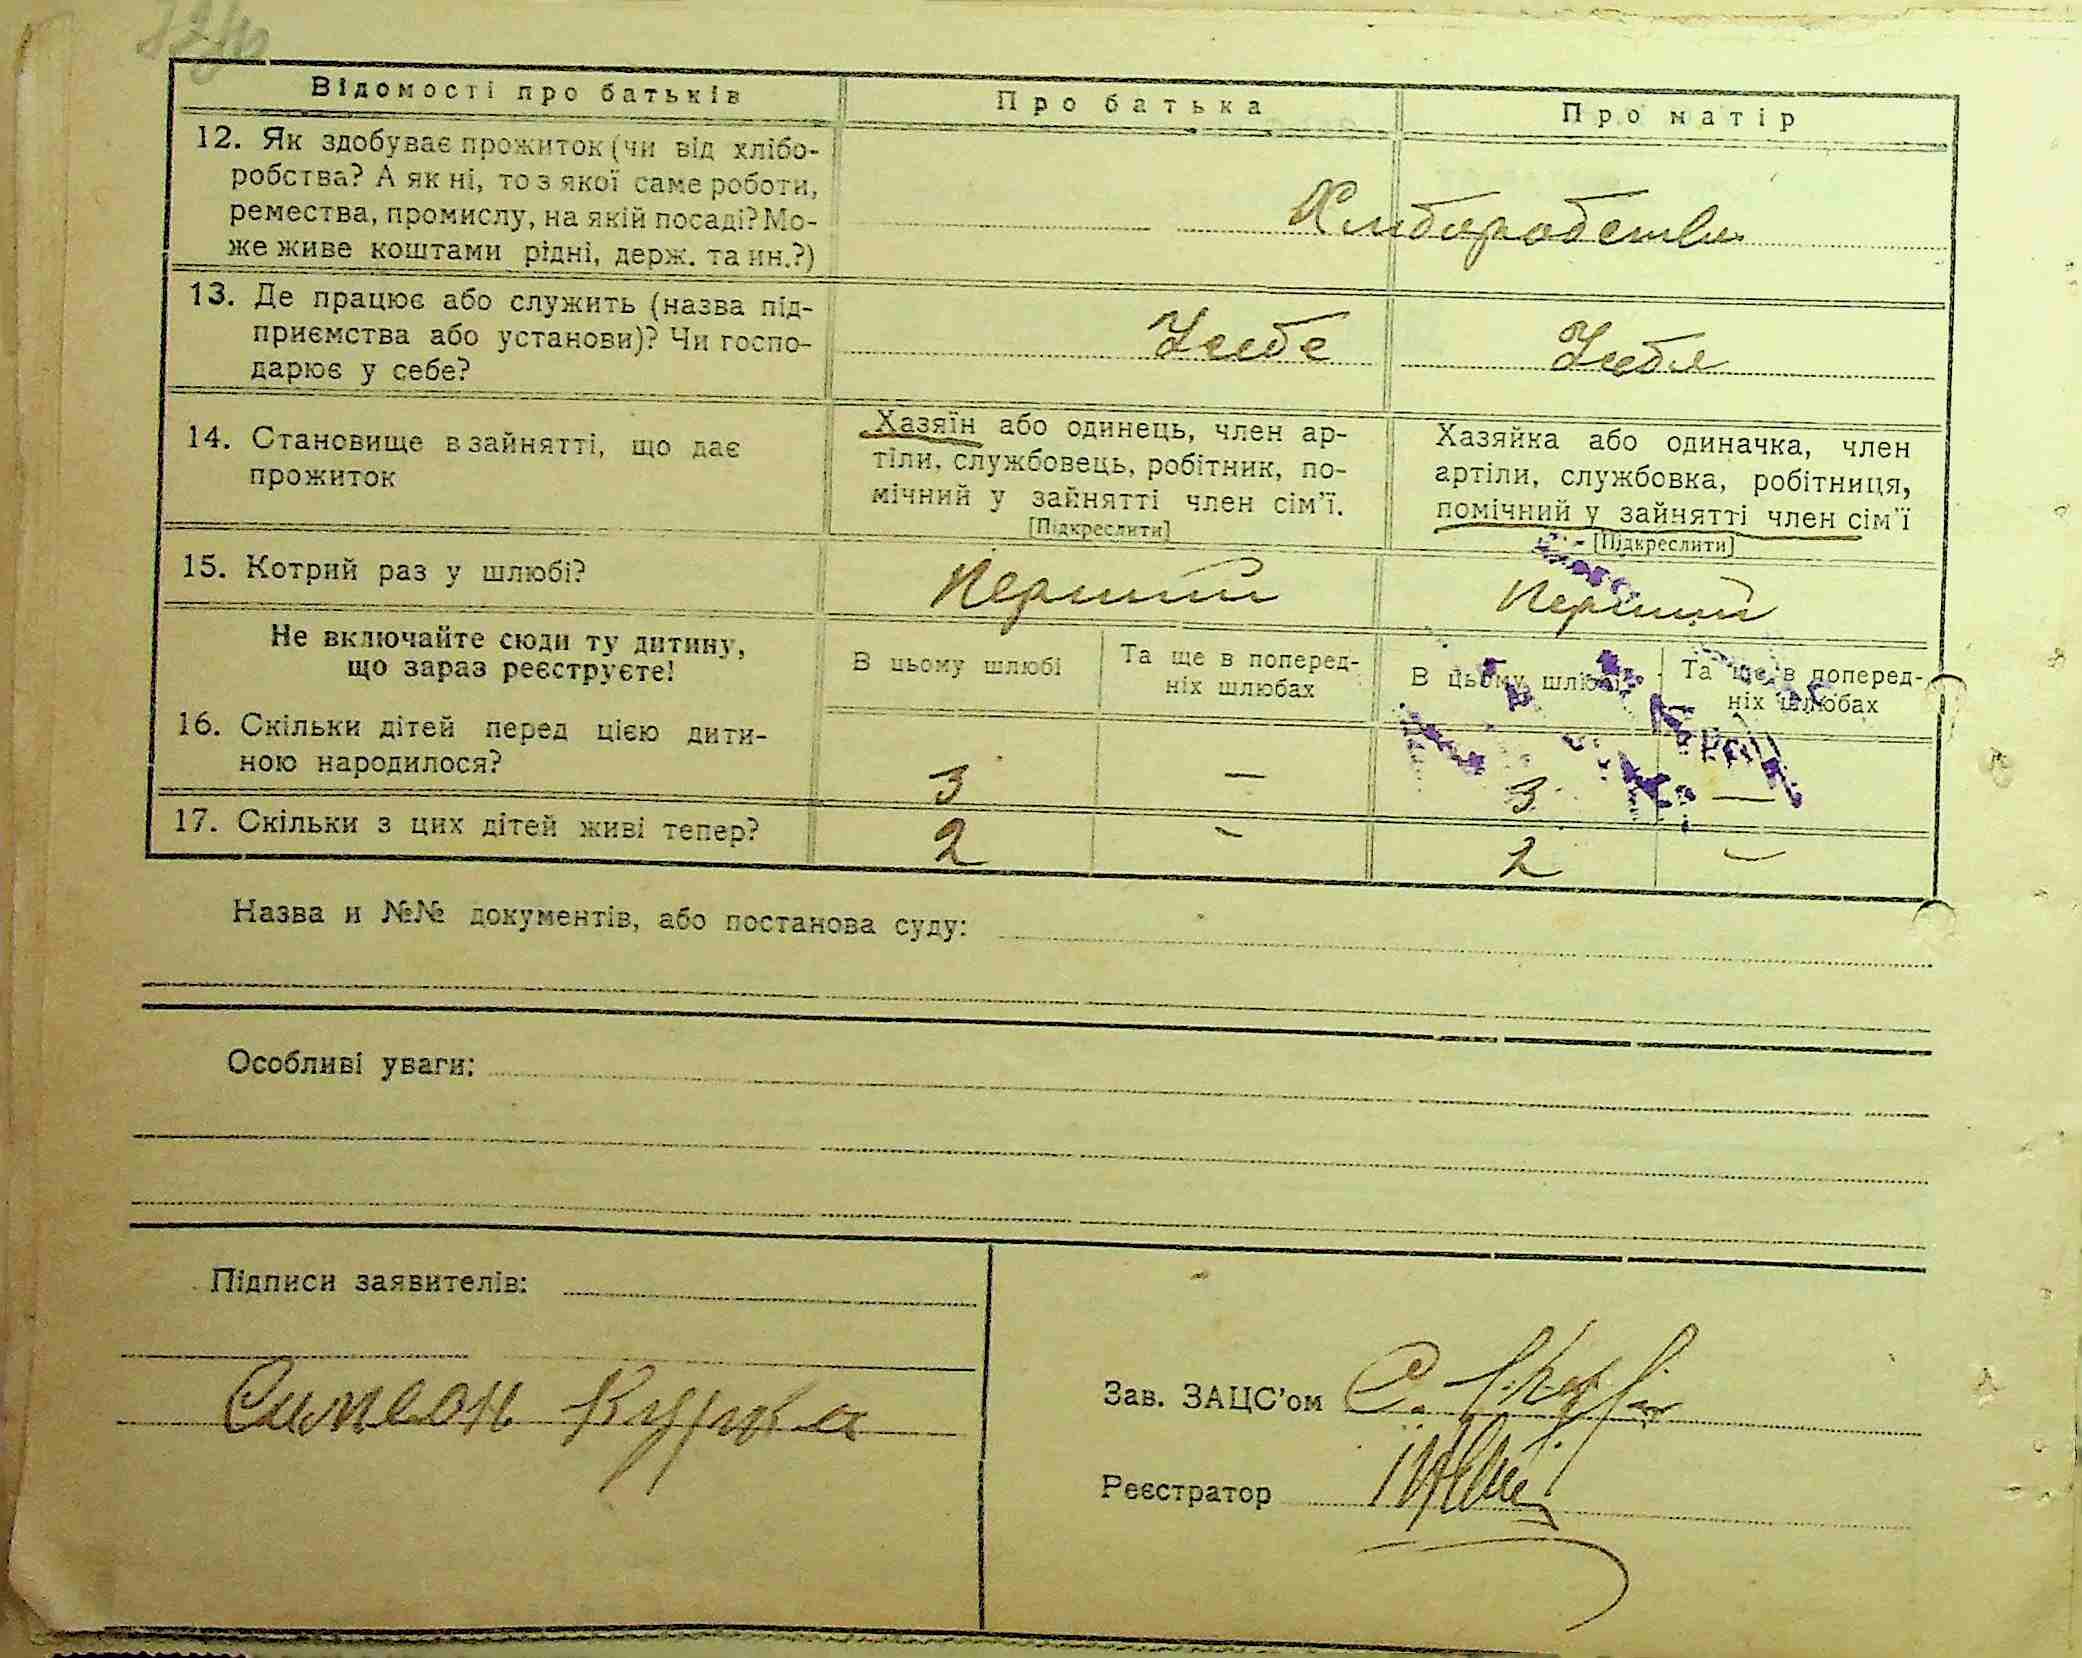 Відомості про батьків
Про батька
Про матір
12. Як здобуває прожиток (чи від хлібо-
робства? А як ні, то з якої саме роботи,
ремества, промислу, на якій посаді? Мо-
же живе коштами рідні, держ. та ин.?)
13. Де працює або служить (назва під-
приємства або установи)? Чи госпо-
дарює у себе?
Усебе
Усебя
14. Становище в зайнятті, що дає
прожиток
Хазяїн або одинець, член ар-
тіли, службовець, робітник, по-
мічний у зайнятті член сім'ї.
[Підкреслити]
Хазяйка або одиначка, член
артіли, службовка, робітниця,
помічний у зайнятті член сім'ї
[Підкреслити]
15. Котрий раз у шлюбі?
Перший
Перший
Не включайте сюди ту дитину,
що зараз реєструєте!
В цьому шлюбі
Та ще в поперед-
ніх шлюбах
В цьому шлюбі
Та ще в поперед-
ніх шлюбах
16. Скільки дітей перед цією дити-
ною народилося?
3
—
3
—
17. Скільки з цих дітей живі тепер?
2
-
2
—
Назва и №№ документів, або постанова суду:
Особливі уваги:
Підписи заявителів:
Симеон
Зав. ЗАЦС'ом
Реєстратор